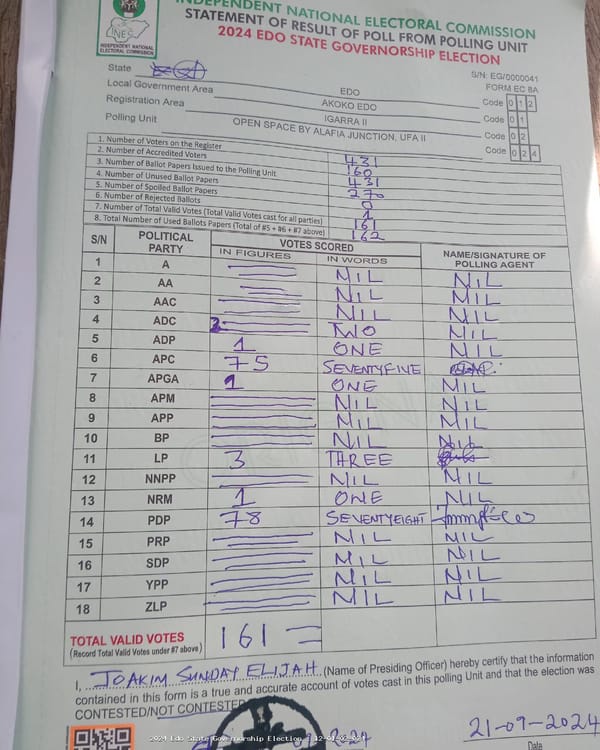 INDEPENDENT NATIONAL ELECTORAL COMMISSION
STATEMENT OF RESULT OF POLL FROM POLLING UNIT
2024 EDO STATE GOVERNORSHIP ELECTION
INEC
INDEPENDENT NATIONAL
ELECTORAL COMMISSION
S/N: EG/0000041
FORM EC 8A
State EDO Code 1 2
Local Government Area AKOKO EDO Code 0 1
Registration Area IGARRA II Code 0 2
Polling Unit OPEN SPACE BY ALAFIA JUNCTION, UFA II Code 0 2 4
1. Number of Voters on the Register 431
2. Number of Accredited Voters 160
3. Number of Ballot Papers Issued to the Polling Unit 431
4. Number of Unused Ballot Papers 270
5. Number of Spoiled Ballot Papers 0
6. Number of Rejected Ballots 1
7. Number of Total Valid Votes (Total Valid Votes cast for all parties) 161
8. Total Number of Used Ballots Papers (Total of #5 + #6 + #7 above) 162
S/N POLITICAL PARTY VOTES SCORED NAME/SIGNATURE OF POLLING AGENT
IN FIGURES IN WORDS
1 A NIL NIL
2 AA NIL NIL
3 AAC NIL NIL
4 ADC 2 TWO NIL
5 ADP 1 ONE NIL
6 APC 75 SEVENTYFIVE
7 APGA 1 ONE NIL
8 APM NIL NIL
9 APP NIL NIL
10 BP NIL NIL
11 LP 3 THREE
12 NNPP NIL NIL
13 NRM 1 ONE NIL
14 PDP 78 SEVENTYEIGHT
15 PRP NIL NIL
16 SDP NIL NIL
17 YPP NIL NIL
18 ZLP NIL NIL
TOTAL VALID VOTES 161
(Record Total Valid Votes under #7 above)
I, JOAKIM SUNDAY ELIJAH (Name of Presiding Officer) hereby certify that the information
contained in this form is a true and accurate account of votes cast in this polling Unit and that the election was
CONTESTED/NOT CONTESTED
2024 Edo State Governorship Election
21-09-2024
Date